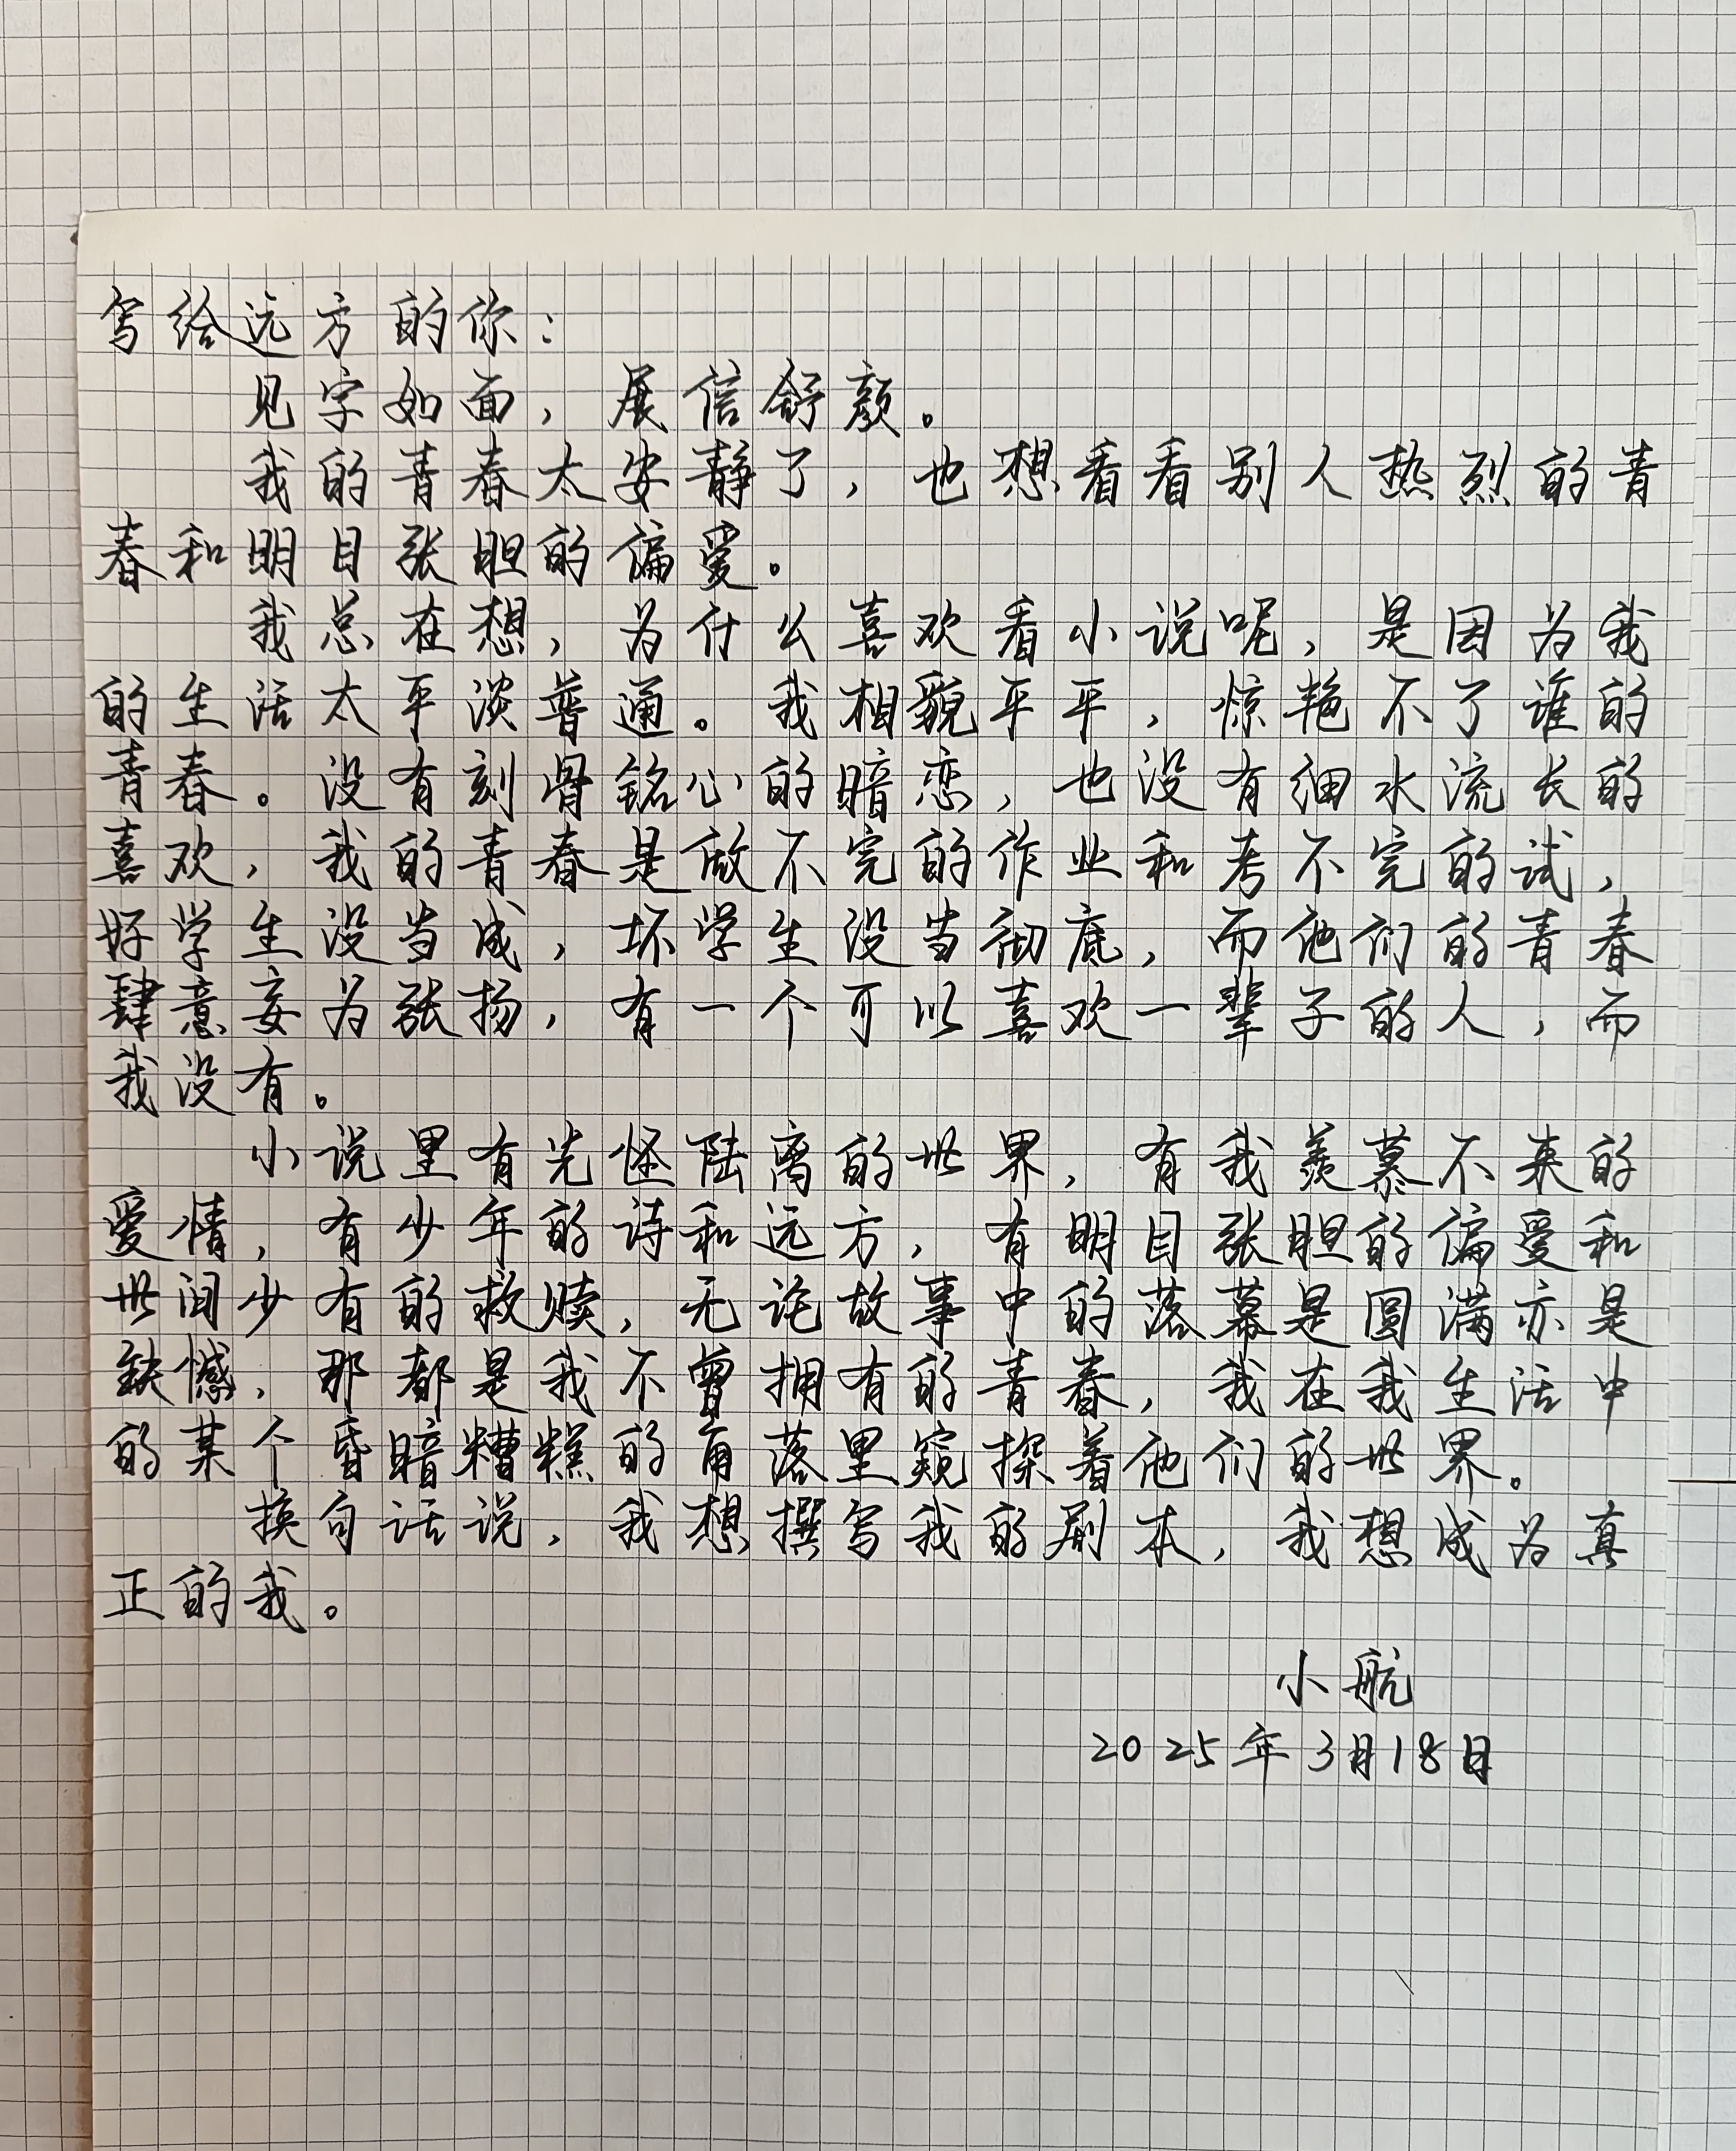 写给远方的你：
见字如面，展信舒颜。
我的青春太安静了，也想看看别人热烈的青
春和明目张胆的偏爱。
我总在想，为什么喜欢看小说呢，是因为我
的生活太平淡普通。我相貌平平，惊艳不了谁的
青春。没有刻骨铭心的暗恋，也没有细水流长的
喜欢，我的青春是做不完的作业和考不完的试，
好学生没当成，坏学生没当彻底，而他们的青春
肆意妄为张扬，有一个可以喜欢一辈子的人，而
我没有。
小说里有光怪陆离的世界，有我羡慕不来的
爱情，有少年的诗和远方，有明目张胆的偏爱和
世间少有的救赎，无论故事中的落幕是圆满亦是
缺憾，那都是我不曾拥有的青春，我在我生活中
的某个昏暗糟糕的角落里窥探着他们的世界。
换句话说，我想撰写我的剧本，我想成为真
正的我。
小航
2025年3月18日